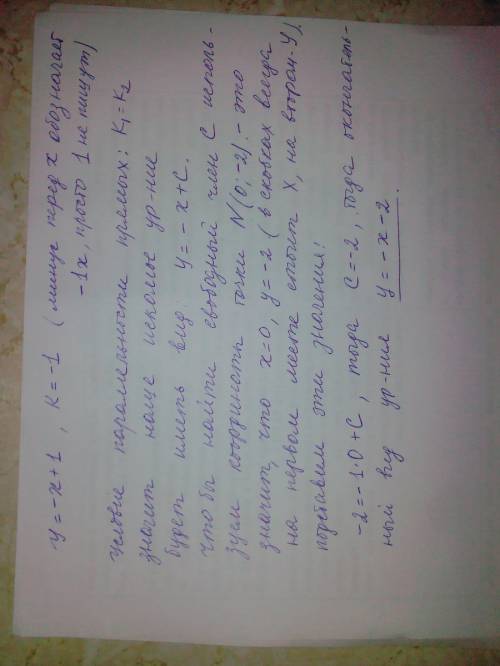 y = -x+1 , K = -1 ( минус перед x обозначает
-1x, просто 1 не пишут)
Условие параллельности прямых: K₁=K₂
значит наше искомое ур-ние
будет иметь вид: y = -x+C.
что бы найти свободный член C исполь-
зуем координаты точки N(0;-2) - это
значит, что x=0, y=-2 ( в скобках всегда
на первом месте стоит X, на втором - y).
подставим эти значения:
-2=-1·0+C, тогда C=-2, тогда окончатель-
ный вид ур-ния y=-x-2